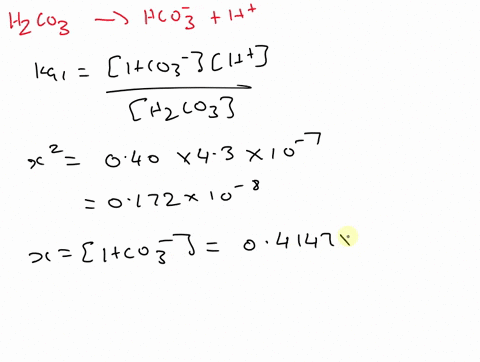 H₂CO₃ → HCO₃⁻ + H⁺
Ka₁ = [HCO₃⁻][H⁺] / [H₂CO₃]
x² = 0.40 × 4.3 × 10⁻⁷
= 0.172 × 10⁻⁸
x = [HCO₃⁻] = 0.4147 ×